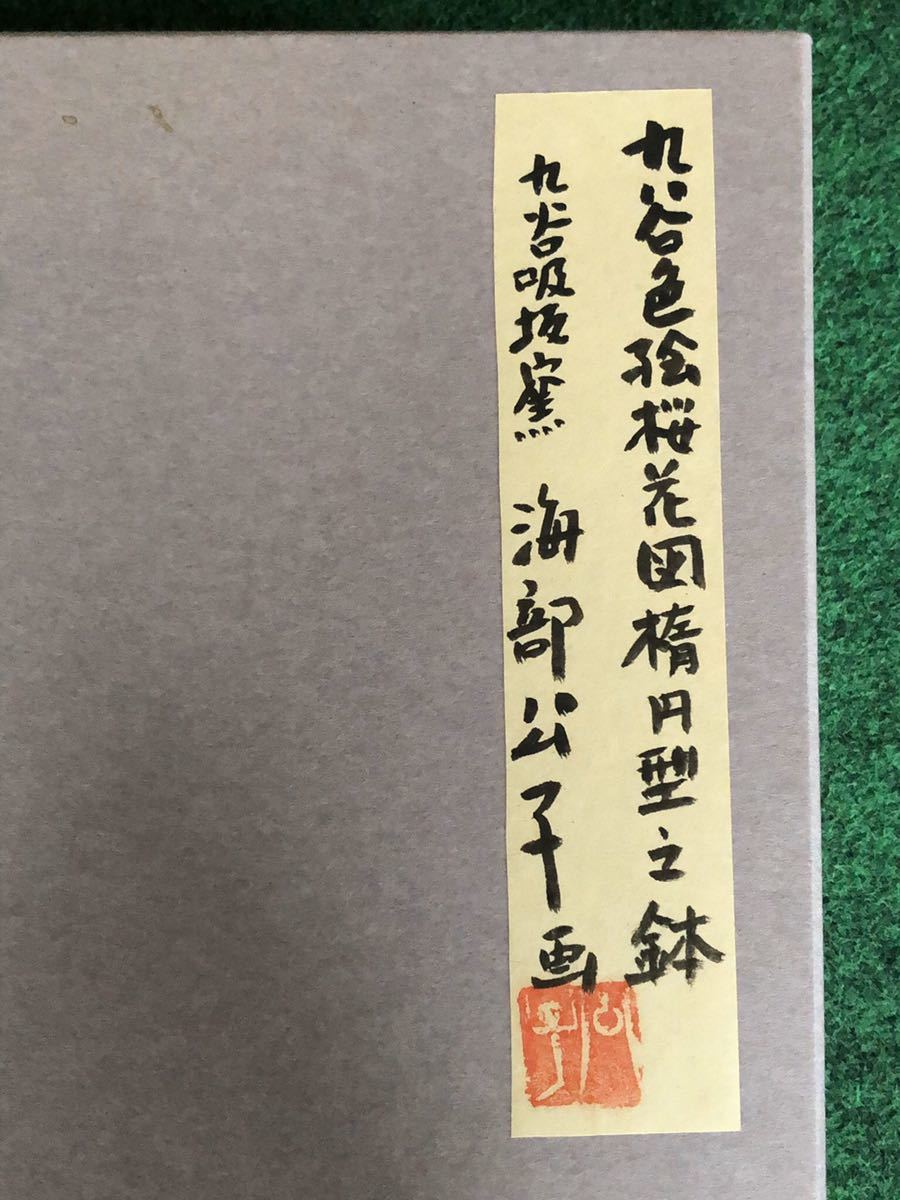 九谷色絵桜花図楕円型之鉢
九谷吸坂窯 海部公子画
公子